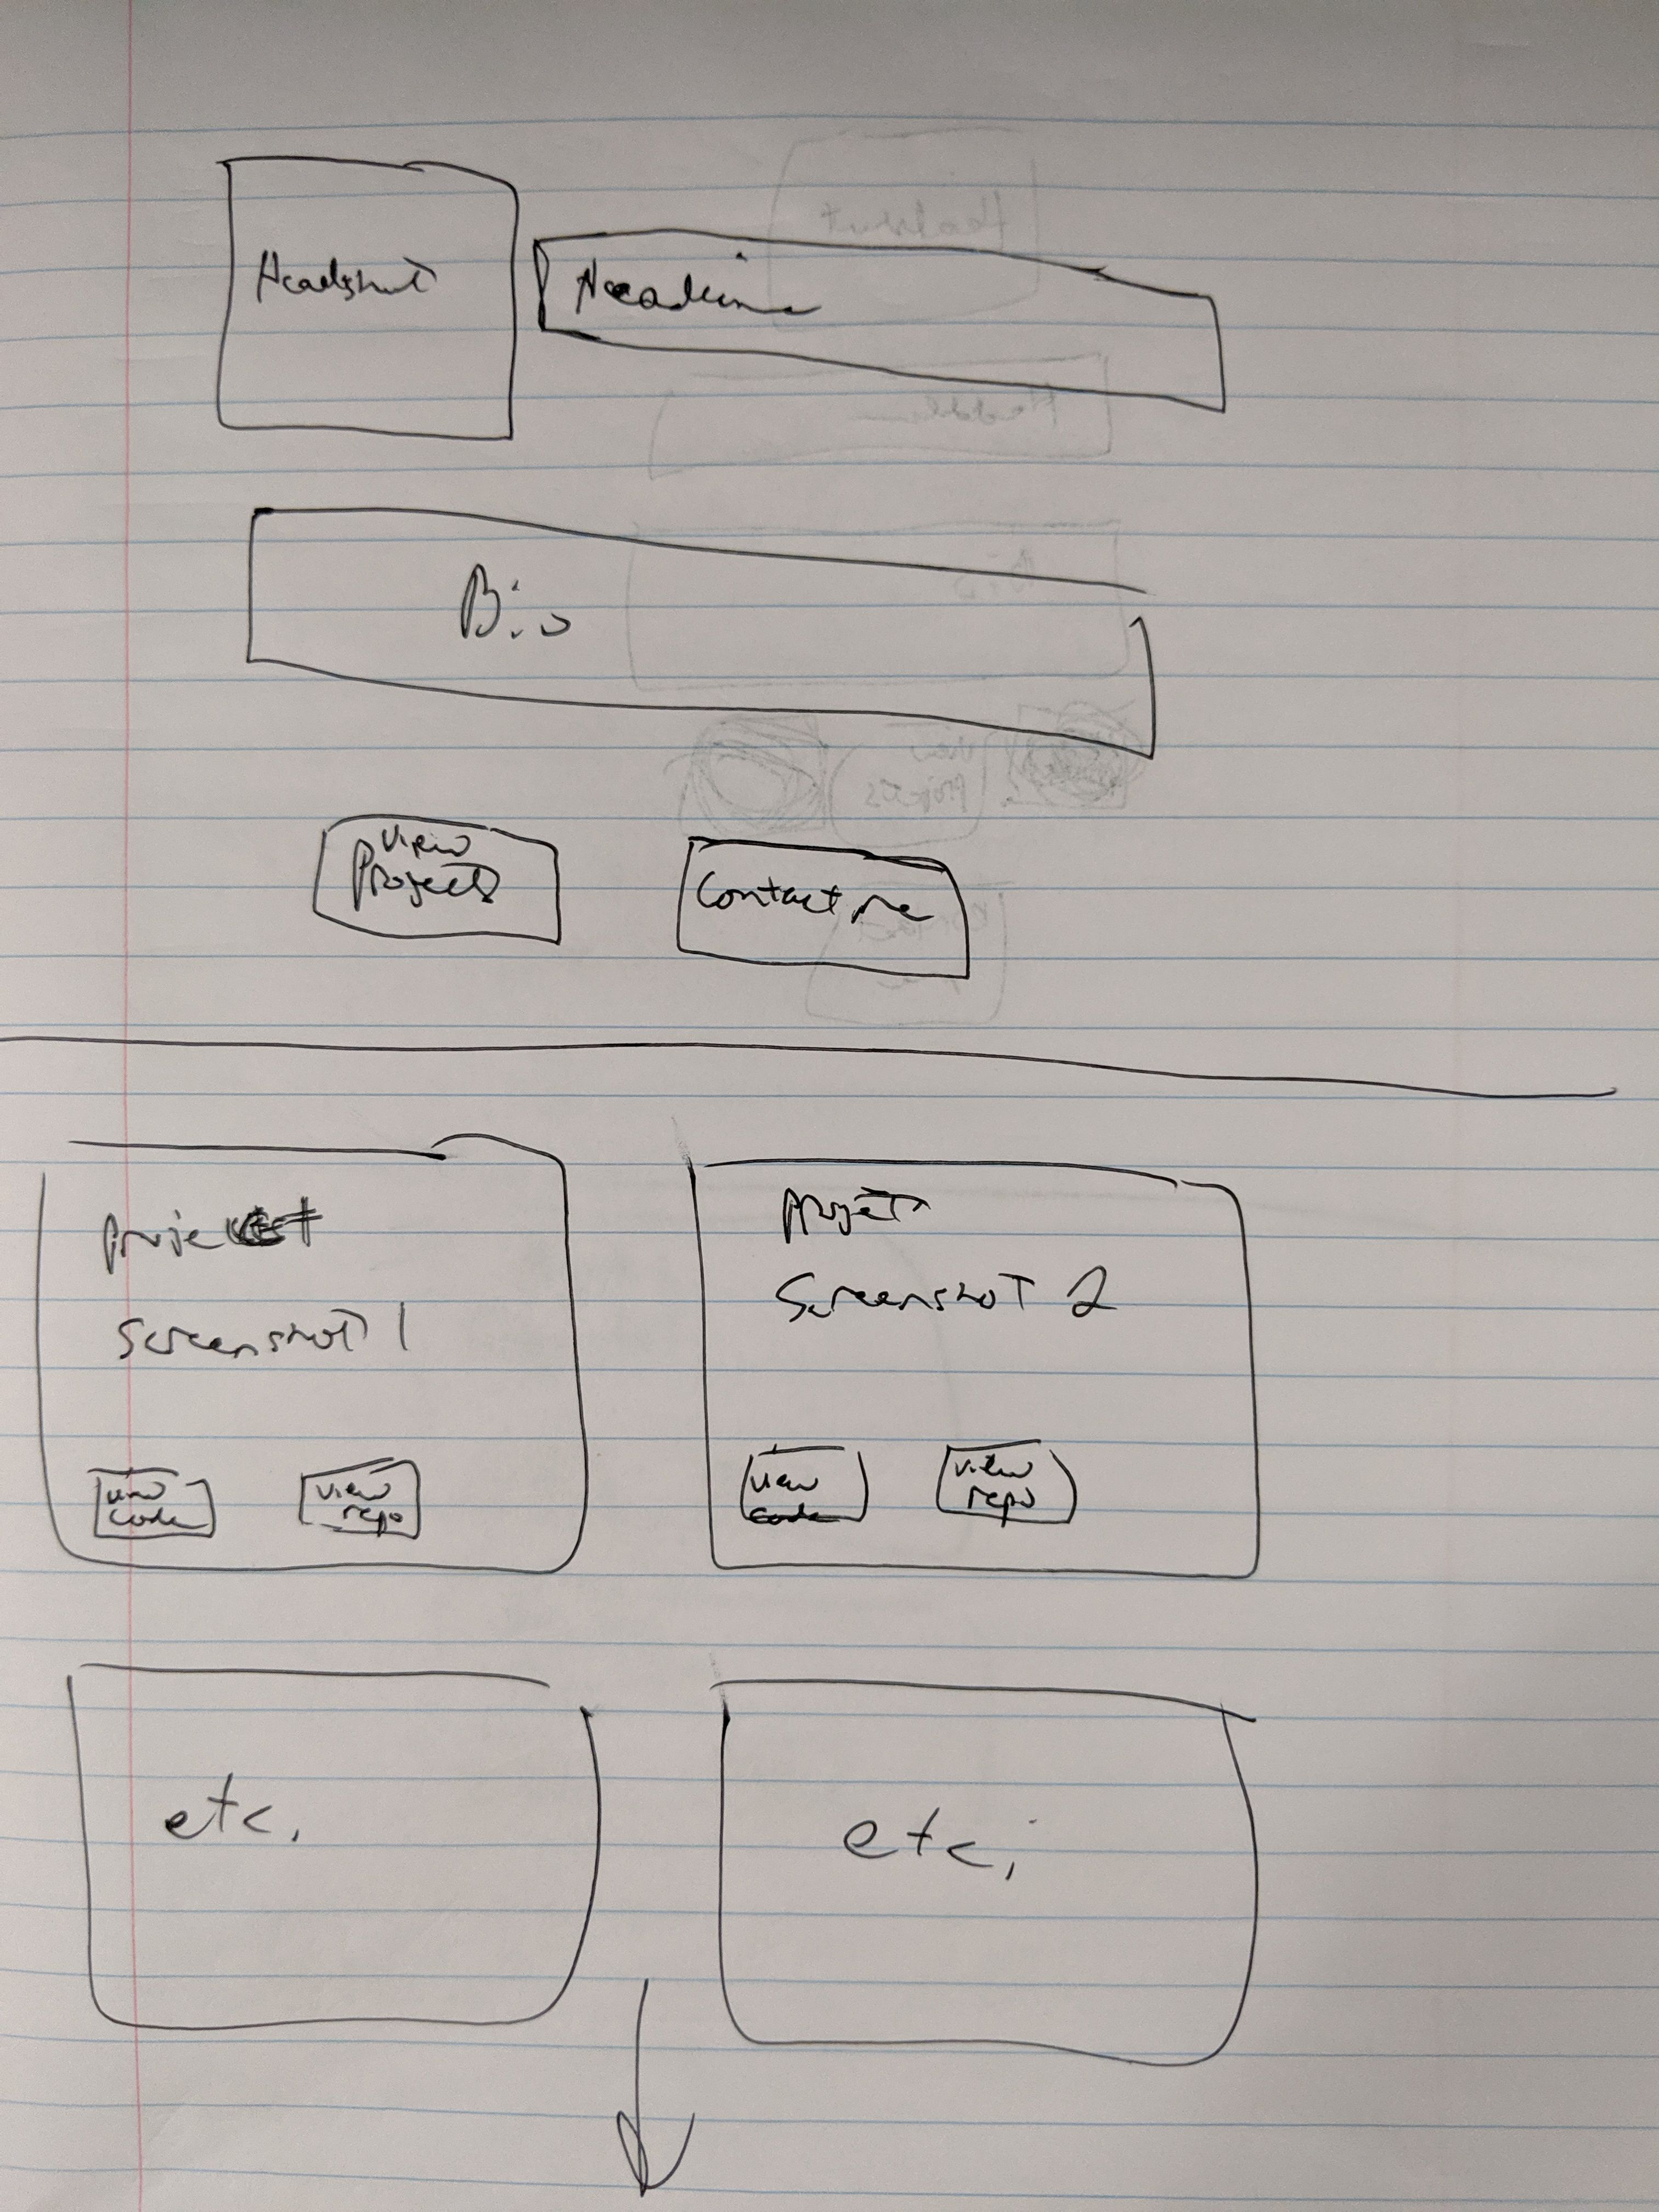 Headshot
Headline
Bio
View
Projects
Contact me
project
screenshot 1
view
code
view
repo
Project
Screenshot 2
view
code
view
repo
etc.
etc.